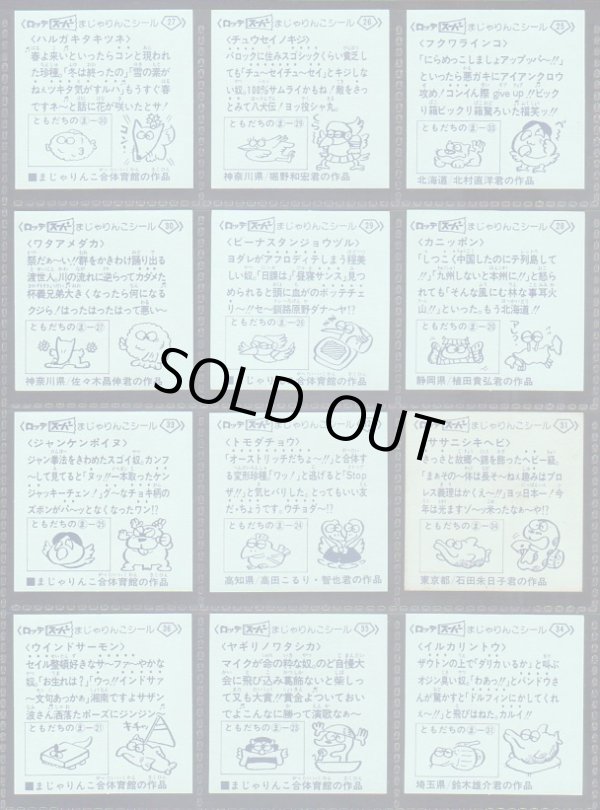 ロッテ スーパー まじゃりんこシール 27
〈ハルガキタキツネ〉
春よ来いといったらコンと現われ
た珍種。「冬は終ったの」「雪の薬が
ねェツキタ気がすルハ」もうすぐ春
ですネ〜と話に花が咲いたとサ!
ともだちの ま-30
■まじゃりんこ合体育館の作品
ロッテ スーパー まじゃりんこシール 26
〈チュウセイノキジ〉
バロックに住みスゴシックくらい貧乏し
ても「チューセイチューセイ」とキジしな
い奴。100%サムライかもね!敵をさっ
とみて八犬伝!ヨッ役シャ丸。
ともだちの ま-29
神奈川県/堀野和宏君の作品
ロッテ スーパー まじゃりんこシール 25
〈フクワラインコ〉
「にらめっこしましょアップップー!!」
といったら悪ガキにアイアンクロウ
攻め!コンイん際 give up!!ビック
リ箱ビックリ箱驚ろいた福笑ッ!!
ともだちの ま-35
北海道/北村直洋君の作品
ロッテ スーパー まじゃりんこシール 30
〈ワタアメダカ〉
祭だぁーい!!群をかきわけ踊り出る
渡世人。川の流れに逆らってカタメた
杯義兄弟大きくなったら何になる
クジら!はったはったはって悪い〜
ともだちの ま-27
神奈川県/佐々木昌伸君の作品
ロッテ スーパー まじゃりんこシール 29
〈ビーナスタンジョウヅル〉
ヨダレがアフロディテしまう程美
しい奴。「日課は」「昼寝サンス」見つ
められると頭に血がのボッテチェ
リ〜!!セ〜釧路原野ダナ〜ヤ!?
ともだちの ま-26
■まじゃりんこ合体育館の作品
ロッテ スーパー まじゃりんこシール 28
〈カニッポン〉
「しつこく中国したのにテ列島して
!!」「九州しないと本州に!!」と怒ら
れても「そんな風にむ林な事耳火
山!!」といった。もう北海道!!
ともだちの ま-20
静岡県/植田貴弘君の作品
ロッテ スーパー まじゃりんこシール 33
〈ジャンケンポイヌ〉
ジャン拳法をきわめたスゴイ奴。カンフ
ーして見てると「ヌッ!!一本取ったケン
ジャッキーチェン!」グ〜なチョキ柄の
ズボンがパ〜ッとなくなったワン!?
ともだちの ま-25
■まじゃりんこ合体育館の作品
ロッテ スーパー まじゃりんこシール
〈トモダチョウ〉
「オーストリッチだちょ〜!!」と合体す
る変形珍種。「ワッ!」と逃げると「Stop
ザ!!」と気とバリした。とってもいい友
だ・ちょうです。ウチョダ〜!?
ともだちの ま-24
高知県/高田こるり・智也君の作品
ロッテ スーパー まじゃりんこシール 31
〈ササニシキヘビ〉
さっさと故郷へ錦を飾ったヘビー級。
「まぁその〜体は長そ〜ねェ趣みはプロ
レス義理はかくえ〜!!」ヨッ日本一!今
年は光ますソ〜ッ来ったなぁ〜や!?
ともだちの ま-34
東京都/石田朱日子君の作品
ロッテ スーパー まじゃりんこシール 36
〈ウインドサーモン〉
セイル整頓好きなサ〜ファ〜やかな
奴。「お生れは?」「ウッ!!インドサァ
〜文句あっかぁ」湘南ですよサザン
波さん洒落たポーズにジンジン〜
ともだちの ま-21
キャッ
■まじゃりんこ合体育館の作品
ロッテ スーパー まじゃりんこシール 35
〈ヤギリノワタシカ〉
マイクが命の粋な奴。のど自慢大
会に飛び込み葛飾ないと柴しっ
て又も大賞!!賞金ょっておいてお
いてよこんなに勝って演歌なぁ〜
ともだちの ま-23
■まじゃりんこ合体育館の作品
ロッテ スーパー まじゃりんこシール 34
〈イルカリントウ〉
ザウトンの上で「ダリカいるか」と叫ぶ
オジン臭い奴。「わあっ!!」とバンドウさ
んが驚かすと「ドルフィンにかしてくれ
ェ〜!!」と飛びはねた。カルイ!!
ともだちの ま-31
埼玉県/鈴木雄介君の作品
SOLD OUT